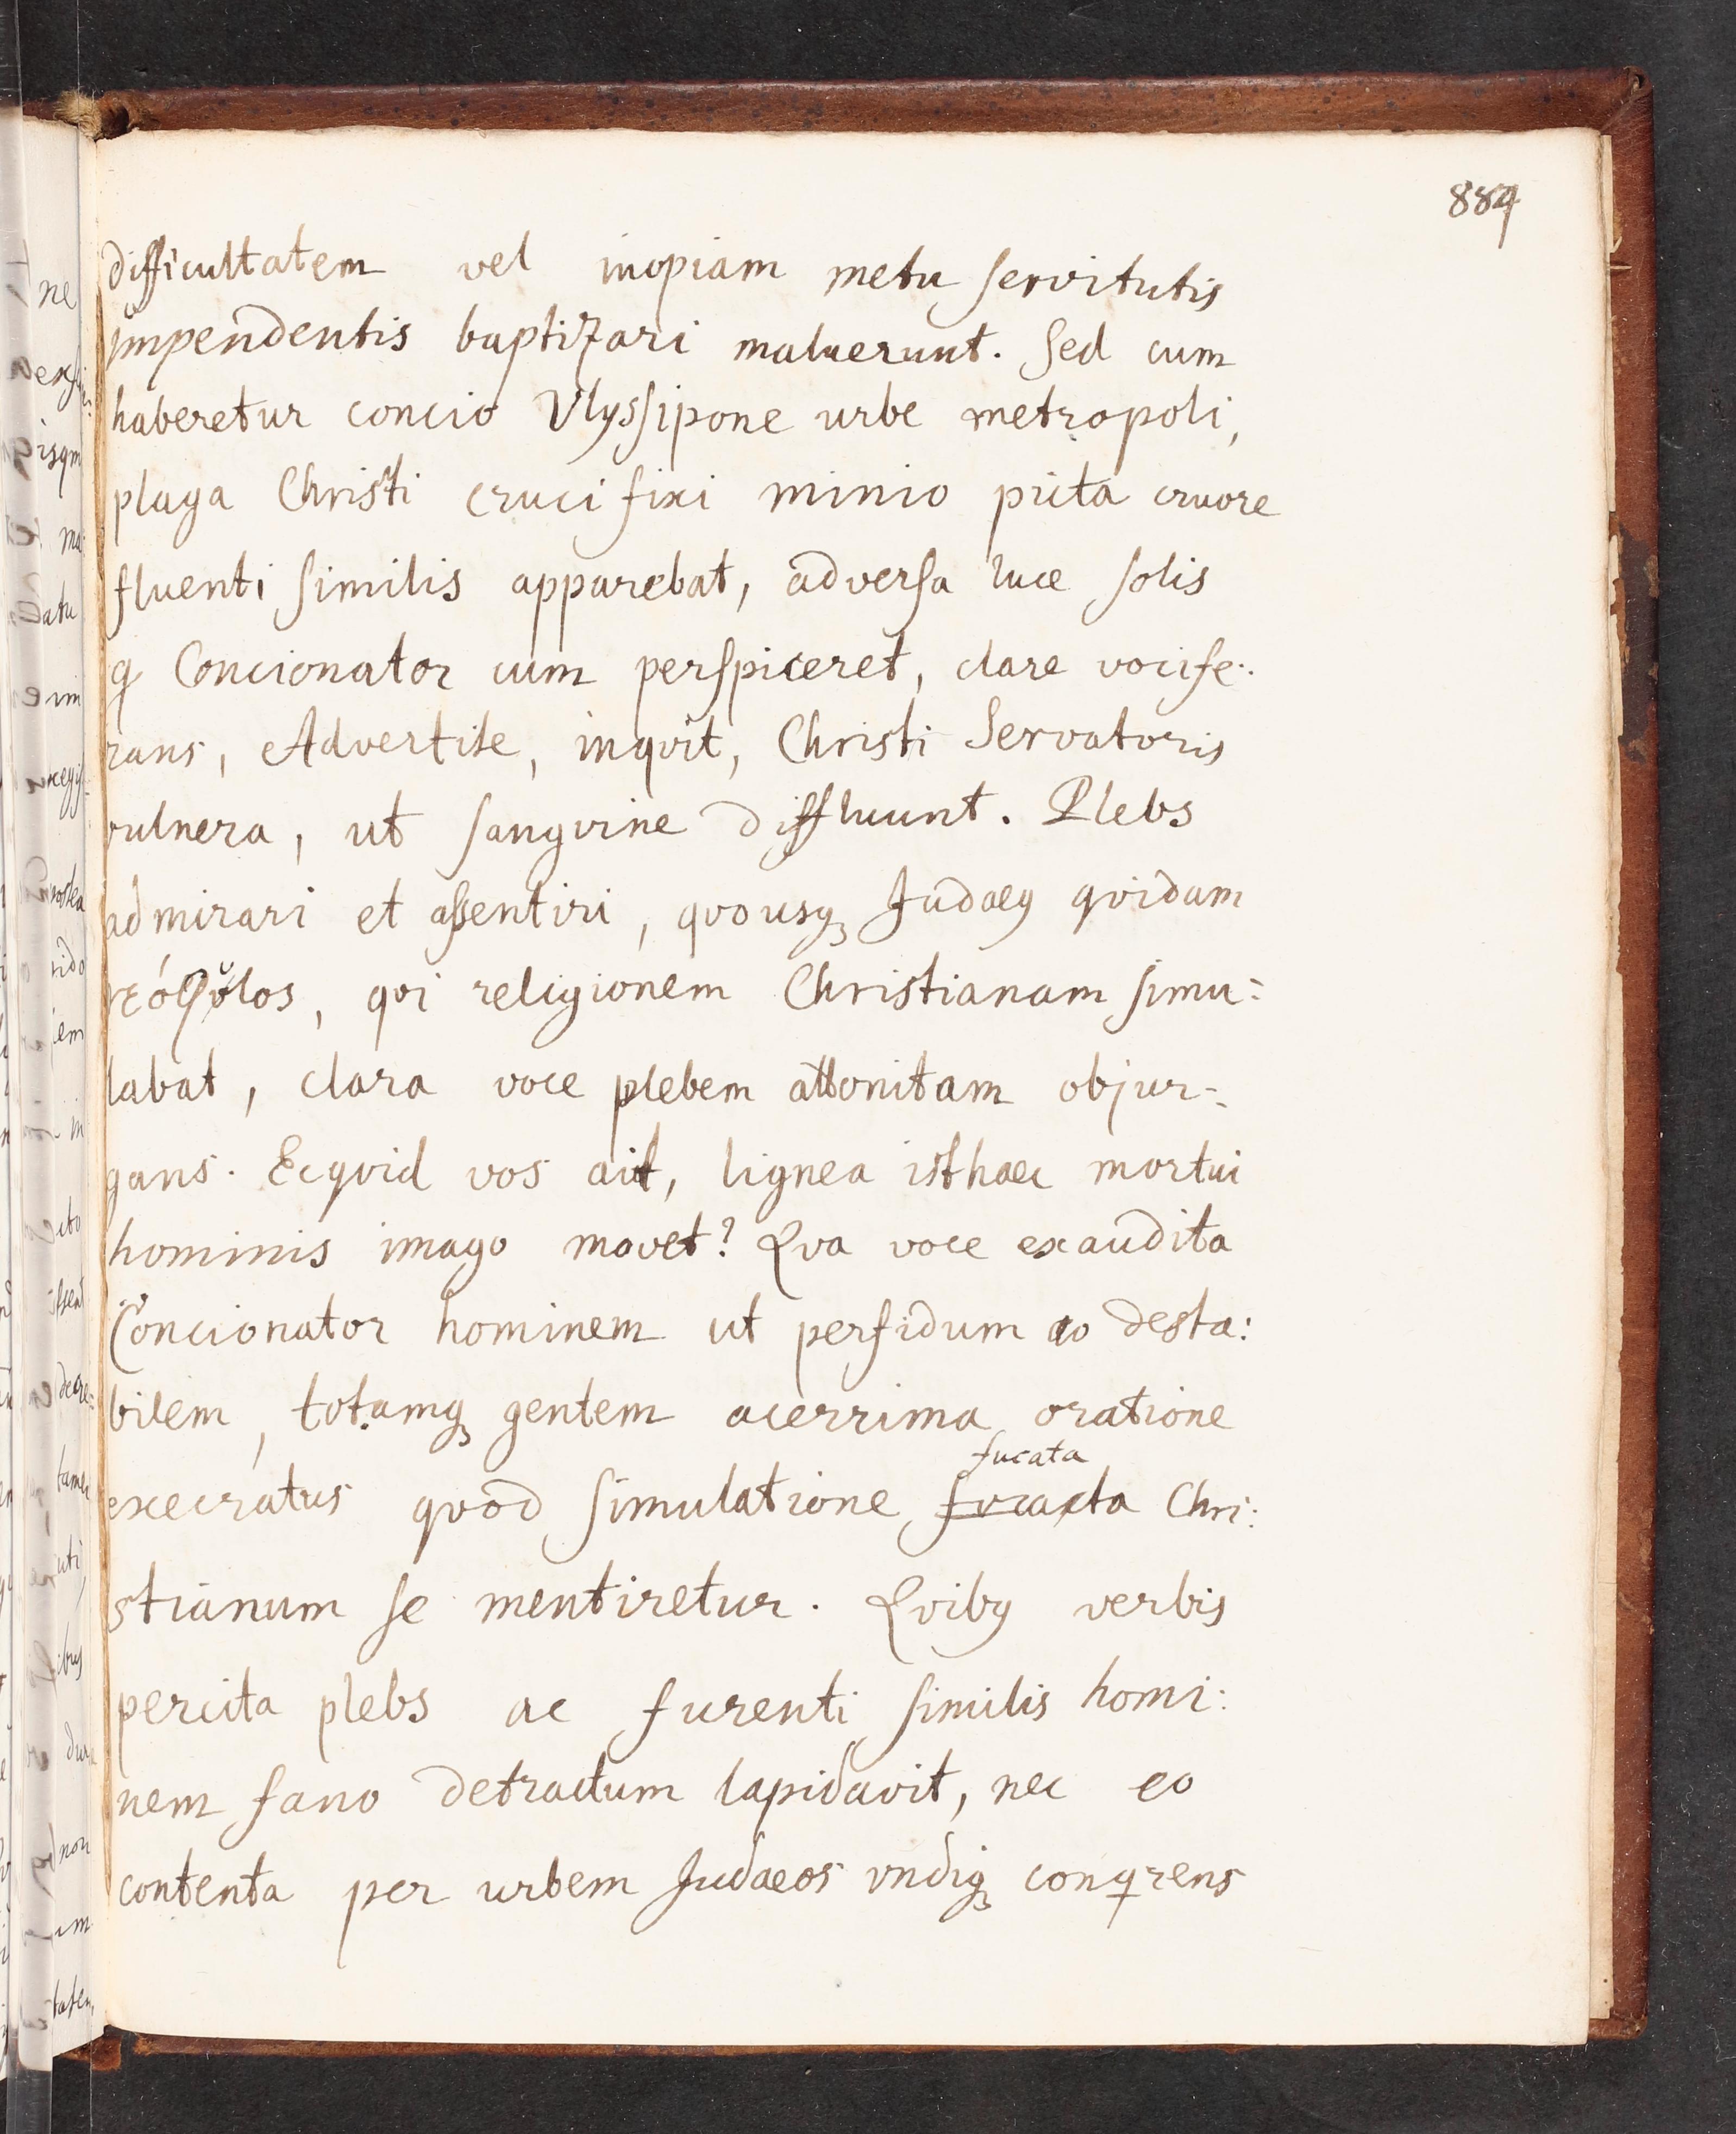 889
difficultatem vel inopiam metu servitutis
impendentis baptizari maluerunt. Sed cum
haberetur concio Vlyssipone urbe metropoli,
plaga Christi crucifixi minio picta cruore
fluenti similis apparebat, adversa luce solis
q Concionator cum perspiceret, clare vocife-
rans, Advertite, inqvit, Christi Servatoris
vulnera, ut sangvine diffluunt. Plebs
admirari et assentiri, qvousq Judaeꝰ qvidam
qvi religionem Christianam simu=
labat, clara voce plebem attonitam objur=
gans. Ecqvid vos ait, lignea isthaec mortui
hominis imago movet? Qva voce exaudita
Concionator hominem ut perfidum ac desta:
bilem, totamq gentem acerrima oratione
execratus qvod simulatione fucata Chri:
stianum se mentiretur. Qvibꝰ verbis
percita plebs ac furenti similis homi:
nem fano detractum lapidavit, nec eo
contenta per urbem Judaeos vndiq conqrens
ne
isqm
atu
im
postea
ido
iem
in
decre=
tame
uti,
ibus
non
im
tatem,